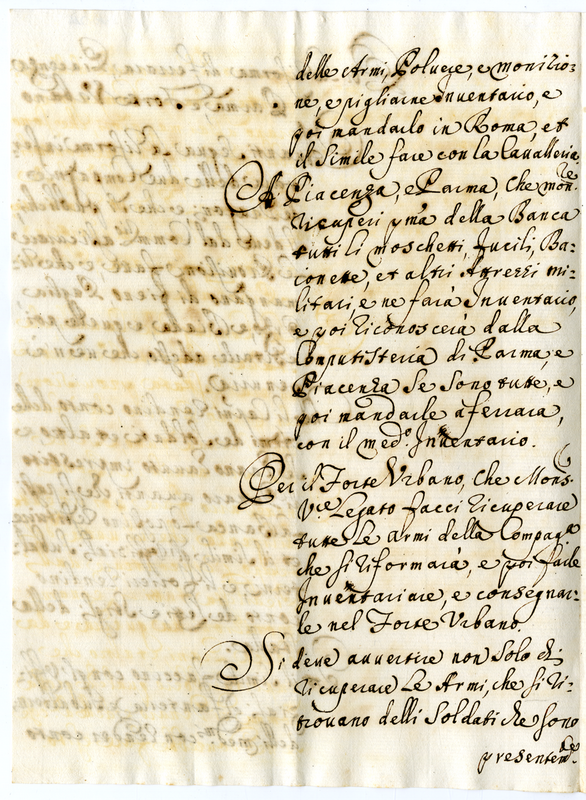 delle Armi, Polvere, e monitio=
ne, e pigliarne Inventario, e
poi mandarlo in Roma, et
il Simile fare con la Cavalleria
A Piacenza, e Parma, che monre
ricuperi pma della Banca
tutti li moschetti, fucili, Ba=
ionette, et altri Attrezzi mi=
litari, e ne farà Inventario,
e poi riconoscerà dalla
Computisteria di Parma, e
Piacenza Se Sono tutte, e
poi mandarle a ferrara,
con il medo. Inventario.
Per il Forte Urbano, che Monsr
Vce Legato facci ricuperare
tutte Le armi della Compaga
che si riformarà, e poi farle
Inventariare, e consegnar=
le nel Forte Urbano.
Si deve avvertire non Solo di
ricuperare Le Armi, che si ri=
trovano delli Soldati che sono